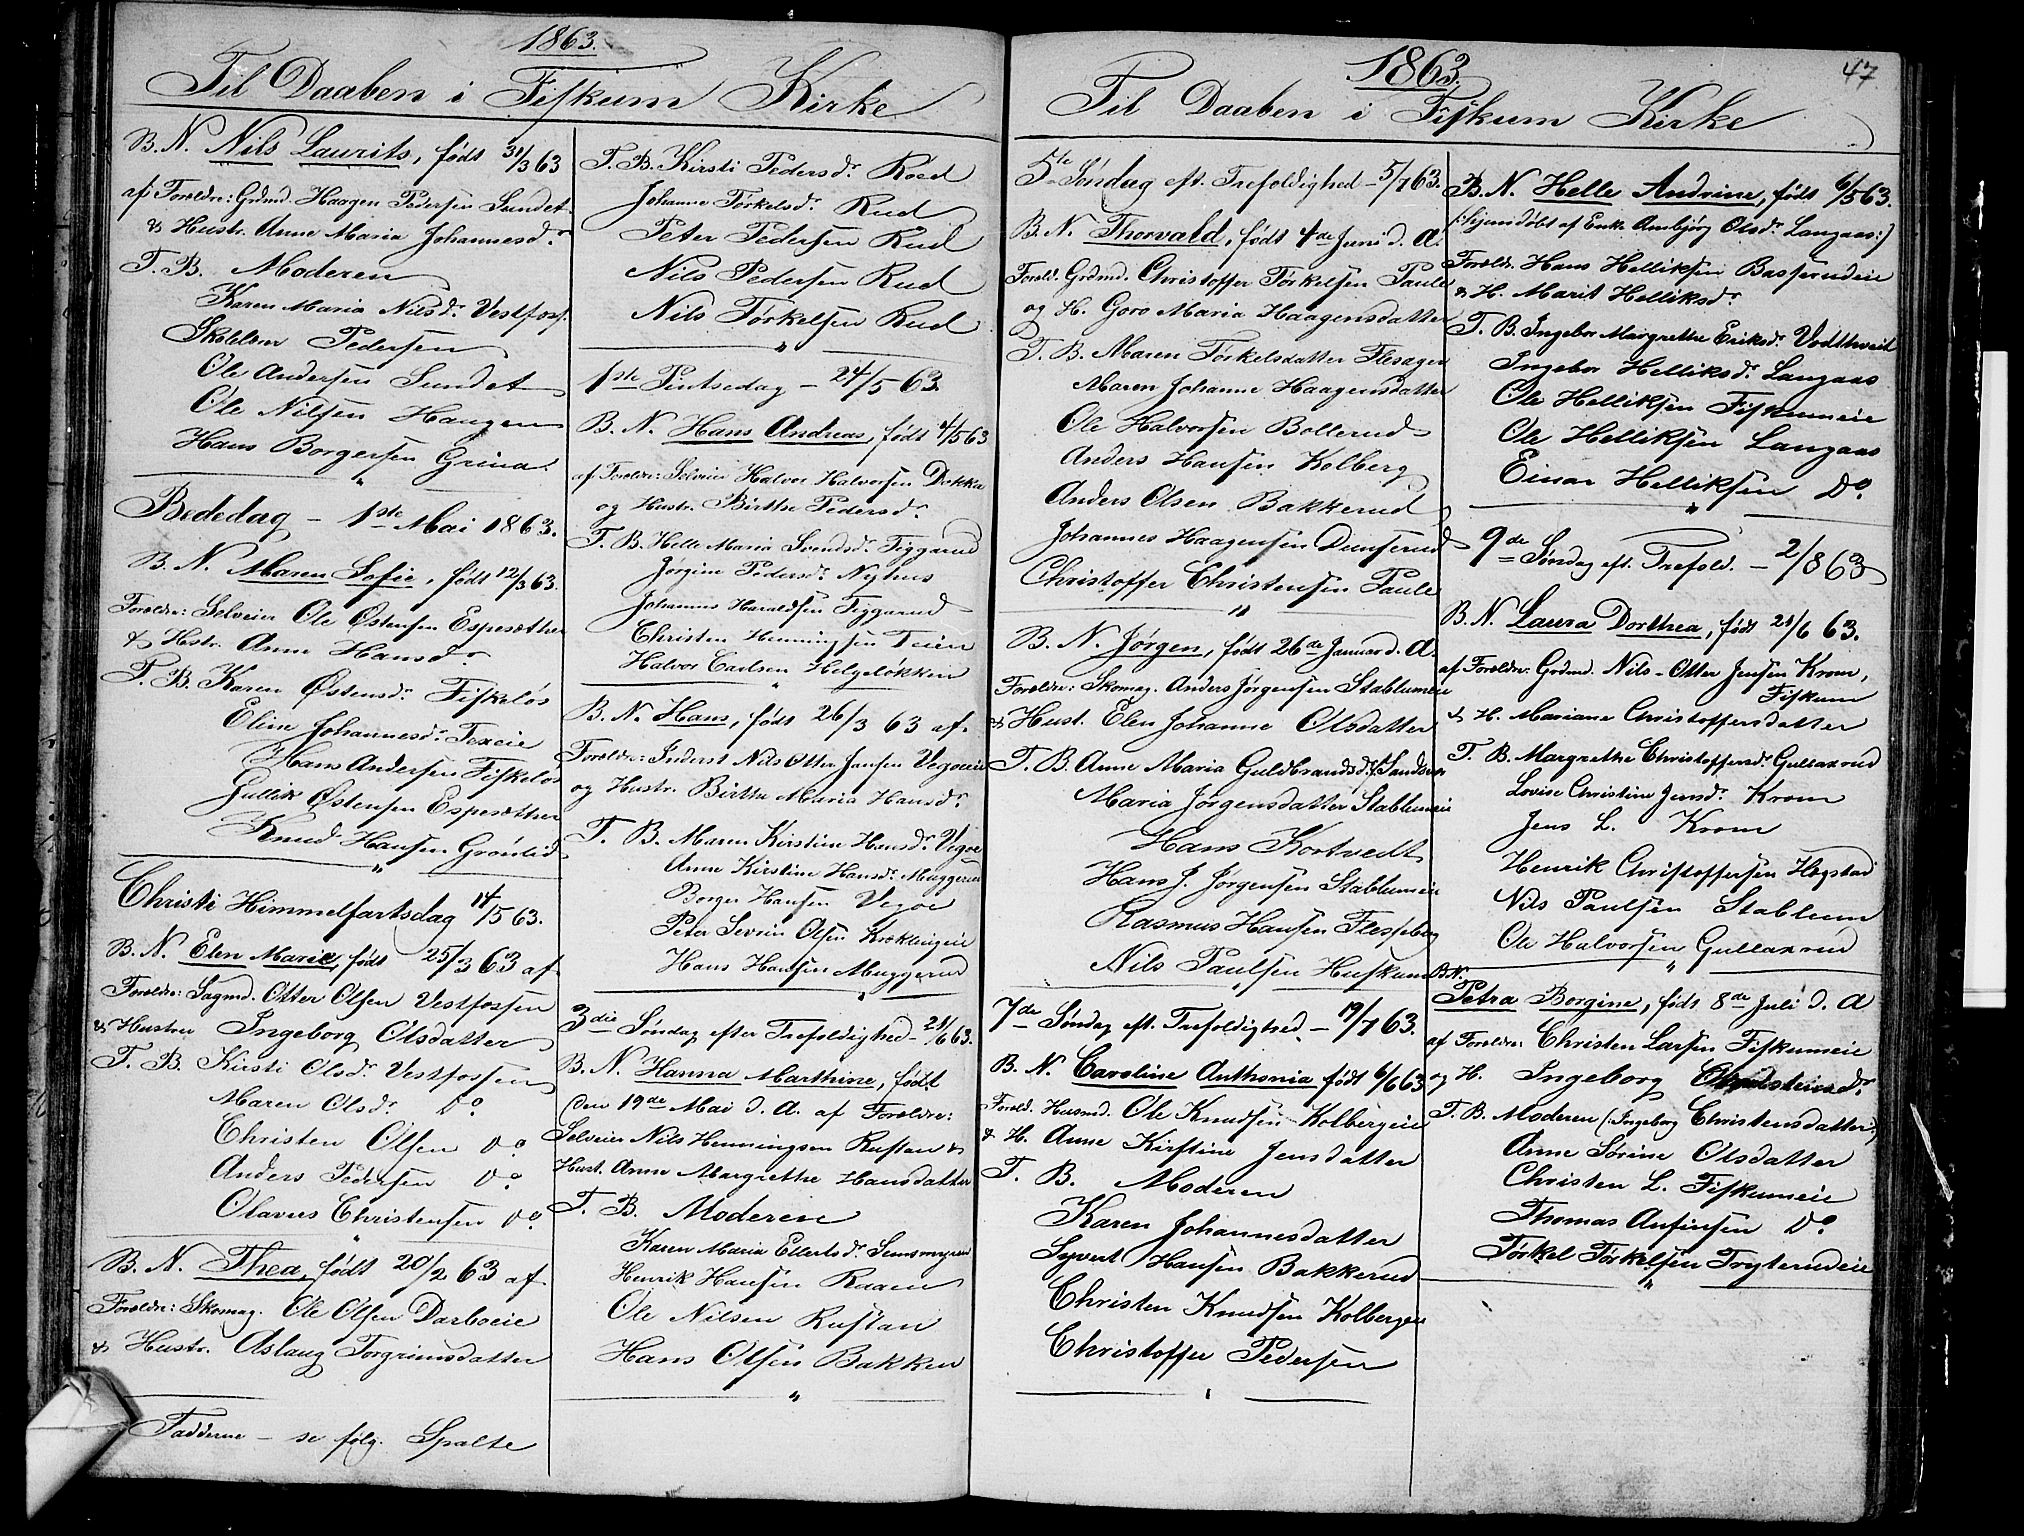 1863.
Til Daaben i Fiskum Kirke
B. N. Nils Laurits, født 31/3 63
af Foreldre: Grdmd. Haagen Pedersen Sundet
& Hustr. Anne Maria Johannesdr.
T. B. Moderen
Karen Maria Nilsdr. Vestfoss.
Pedersen
Ole Andersen Sundet
Ole Nilsen Haugen
Hans Borgersen Grina
"
Bededag – 1ste Mai 1863.
B. N. Maren Sofie, født 12/3 63.
Foreldre: Selveier Ole Østensen Espesæther
& Hstr. Anne Hansdr.
T. B. Karen Østensdr. Fiskeløs
Eline Johannesdr. Fexeie
Hans Andersen Fiskeløs
Gullik Østensen Espesæther
Knud Hansen Grønlid
"
Christi Himmelfartsdag 14/5 63.
B. N. Elen Marie, født 25/3 63 af
Foreldre: Sagmd. Otter Olsen Vestfossen
& Hustrue Ingeborg Olsdatter
T. B. Kirsti Olsdr. Vestfossen
Maren Olsdr. Do.
Christen Olsen Do.
Anders Pedersen Do.
Olavus Christensen Do.
"
B. N. Thea, født 20/2 63 af
Foreldre: Skomag. Ole Olsen Darboeie
& Hustr. Aslaug Torgrimsdatter
Fadderne – se følg. Spalte
T. B. Kirsti Pedersdr. Roed
Johanne Torkelsdr. Rud
Peter Pedersen Rud
Nils Pedersen Rud
Nils Torkelsen Rud
"
1ste Pintsedag – 24/5 63.
B. N. Hans Andreas, født 4/5 63
af Foreldre: Selveier Halvor Halvorsen Dokka
og Hustr. Birthe Pedersdr.
T. B. Helle Maria Svendsdr. Figgerud
Jørgine Pedersdr. Nyhus
Johannes Haraldsen Figgerud
Christen Henningsen Teien
Halvor Carlsen Helgeløkken
"
B. N. Hans, født 26/3 63 af
Foreldre: Inderst Nils Otter Jansen Vegoeie
og Hustr. Birthe Maria Hansdr.
T. B. Maren Kirstine Hansdr. Vegoe
Anne Kirstine Hansdr. Muggerud
Borger Hansen Vegoe
Peter Severin Olsen Kroklingeie
Hans Hansen Muggerud
"
3die Søndag efter Trefoldighed – 21/6 63.
B. N. Hanna Marthine, født
den 19de Mai d. A. af Foreldre:
Selveier Nils Henningsen Rustan &
Hust. Anne Margrethe Hansdatter
T. B. Moderen
Karen Maria Ellertsdr. Semsmyren
Henrik Hansen Raaen
Ole Nilsen Rustan
Hans Olsen Bakken
"
47
1863.
Til Daaben i Fiskum Kirke
5te Søndag eft. Trefoldighed – 5/7 63.
B. N. Thorvald, født 4de Juni d. A.
Foreld. Grdmd. Christoffer Torkelsen Paule
og H. Goro Maria Haagensdatter
T. B. Maren Torkelsdatter Flesager
Maren Johanne Haagensdatter
Ole Halvorsen Bollerud
Anders Hansen Kolberg
Anders Olsen Bakkerud
Johannes Haagensen Dunserud
Christoffer Christensen Paule
"
B. N. Jørgen, født 26de Januar d. A.
Foreldre: Skomag. Anders Jørgensen Stablumeie
& Hust. Elen Johanne Olsdatter
T. B. Anne Maria Guldbrandsdr.
Maria Jørgensdatter Stablumeie
Hans Kortvedt
Hans J. Jørgensen Stablumeie
Rasmus Hansen Flesseberg
Nils Paulsen Huskum
"
7de Søndag eft. Trefoldighed – 19/7 63.
B. N. Caroline Anthonia født 6/6 63
Foreld. Husmd. Ole Knudsen Kolbergeie
& H. Anne Kirstine Jensdatter
T. B. Moderen
Karen Johannesdatter
Syvert Hansen Bakkerud
Christen Knudsen Kolbergeie
Christoffer Pedersen
B. N. Helle Andrine, født 6/5 63.
(: Hjemdøbt af Enke Ambjørg Olsdr. Langaas :)
Foreldr. Hans Helliksen Basserudeie
& H. Marit Helliksdr.
T. B. Ingebor Margrethe Eriksdr. Vodthveit
Ingebor Helliksdr. Langaas
Ole Helliksen Fiskumeie
Ole Helliksen Langaas
Einar Helliksen Do.
"
9de Søndag eft. Trefold. – 2/8 63
B. N. Laura Dorthea, født 21/6 63.
af Foreldre: Grdmd. Nils-Otter Jensen Krom,
Fiskum
& H. Mariane Christoffersdatter
T. B. Margrethe Christoffersdr. Gullaxrud
Lovise Christine Jensdr. Krom
Jens L. Krom
Henrik Christoffersen Hogstad
Nils Paulsen Stablum
Ole Halvorsen Gullaxrud
"
B. N.
Petra Borgine, født 8de Juli d. A
af Foreldre: Christen Larsen Fiskumeie
og H. Ingeborg Christensdr.
T. B. Moderen (: Ingeborg Christensdatter :)
Anne Sørine Olsdatter
Christen L. Fiskumeie
Thomas Anfinsen Do.
Torkel Torkelsen Tryterudeie
"